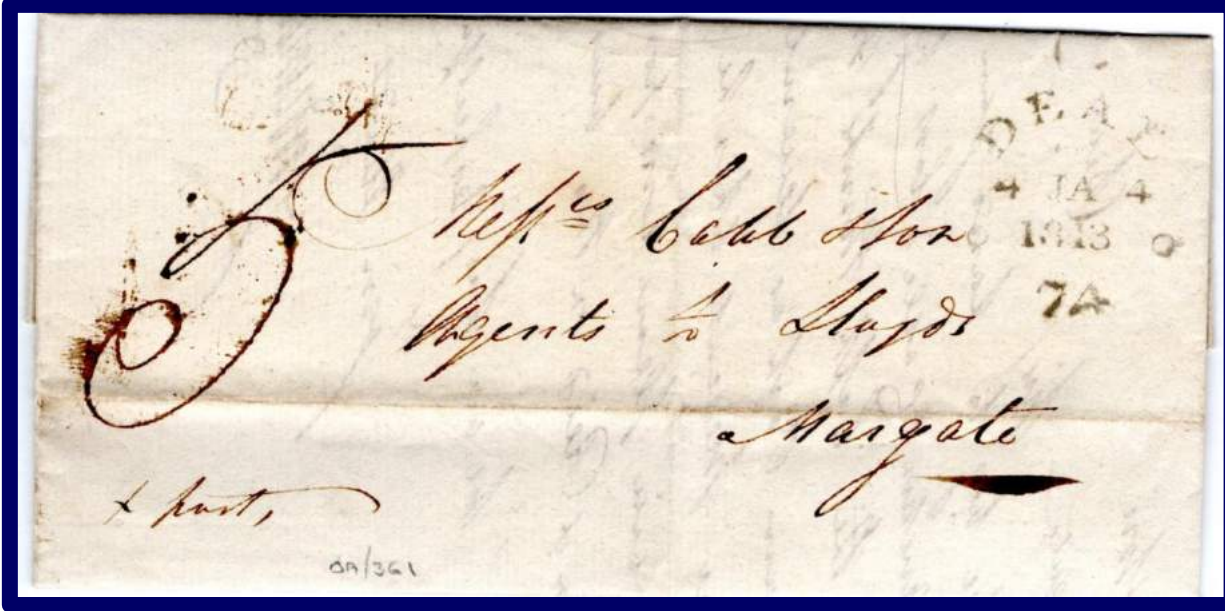 DEAL
4 JA 4
1813
74
5
Messrs Cobb & Son
Agents to Lloyds
Margate
post,
DA/361